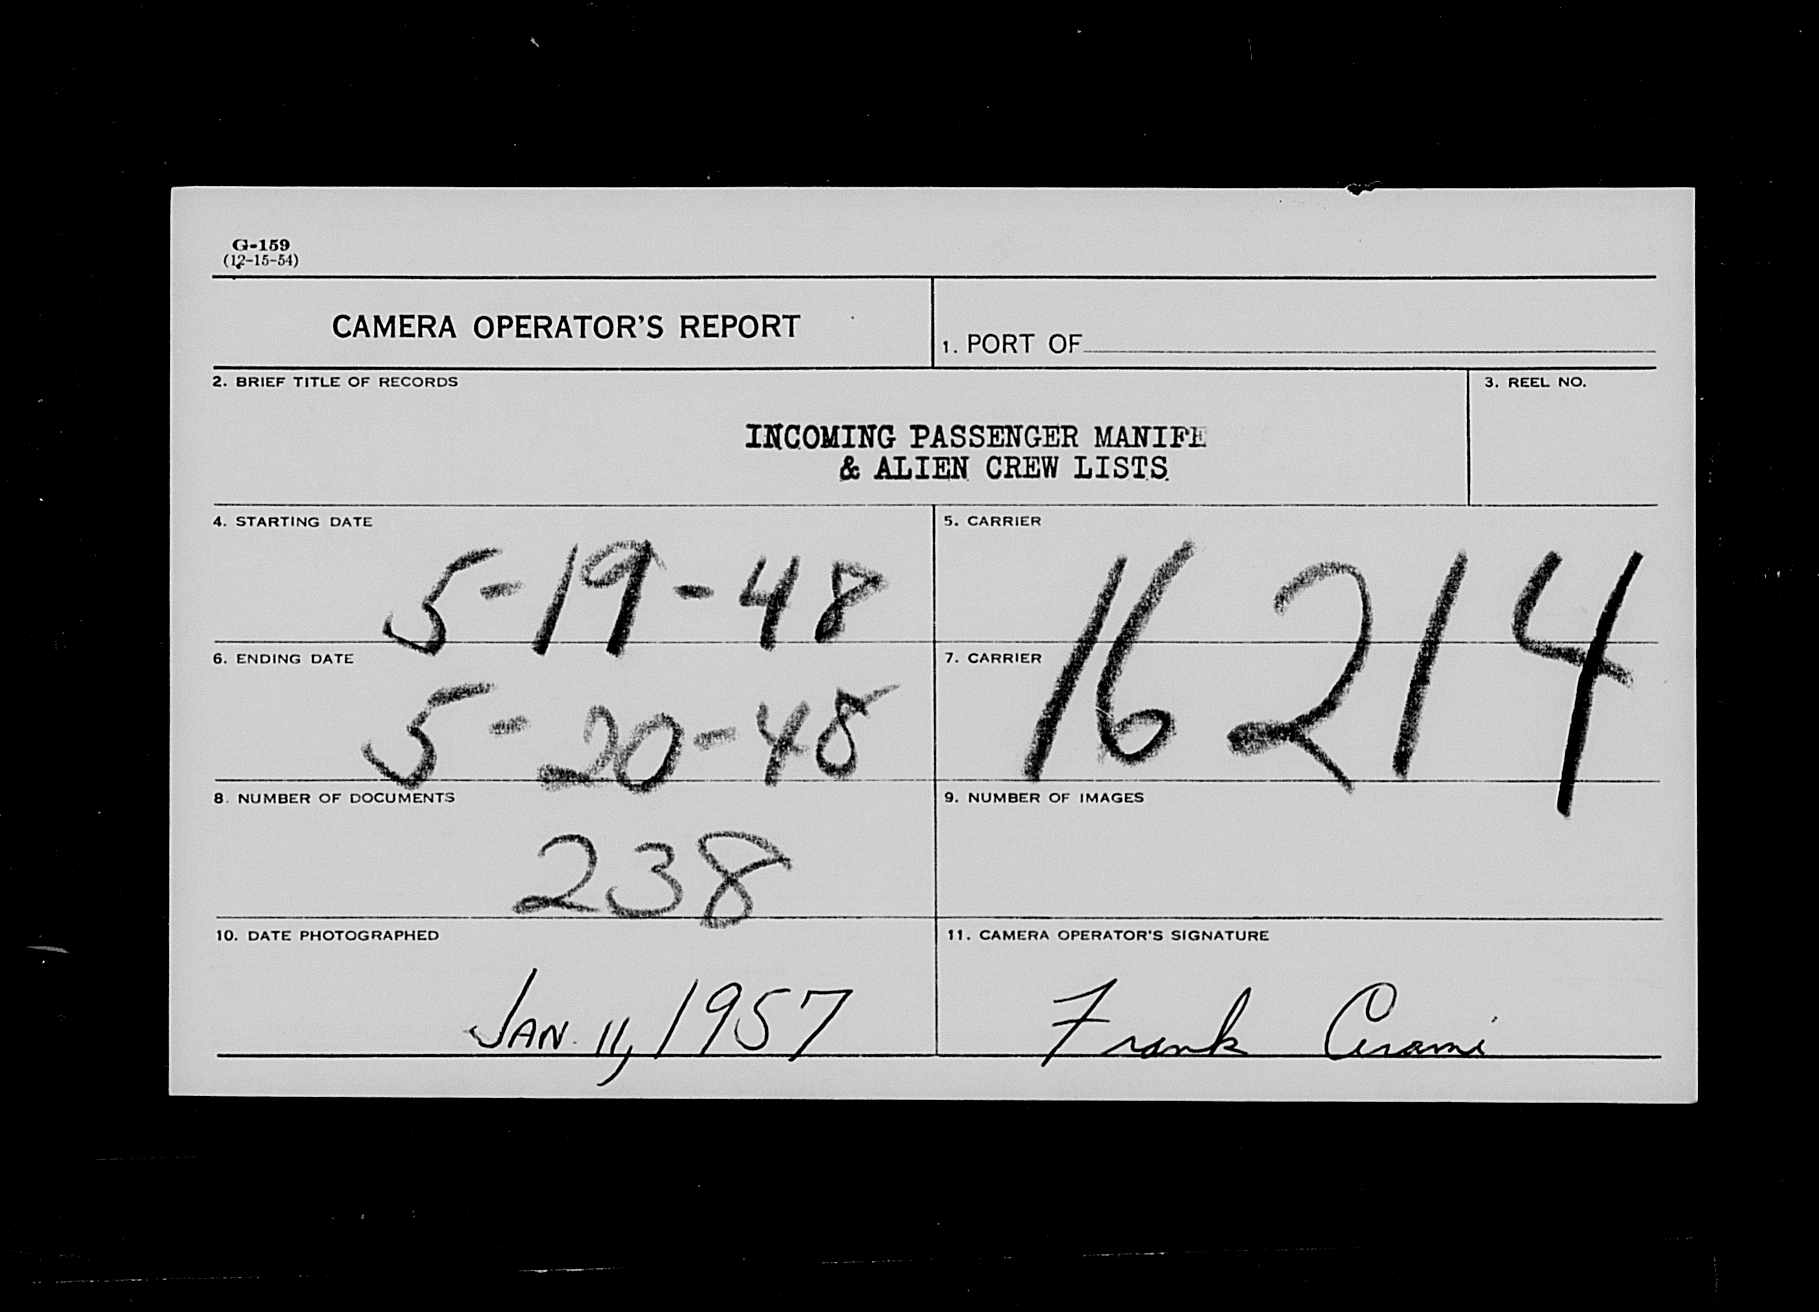 G-159
(12-15-54)
CAMERA OPERATOR'S REPORT
1. PORT OF
2. BRIEF TITLE OF RECORDS
3. REEL NO.
INCOMING PASSENGER MANIFE
& ALIEN CREW LISTS
4. STARTING DATE
5-19-48
5. CARRIER
16214
6. ENDING DATE
5-20-48
7. CARRIER
8. NUMBER OF DOCUMENTS
238
9. NUMBER OF IMAGES
10. DATE PHOTOGRAPHED
JAN. 11, 1957
11. CAMERA OPERATOR'S SIGNATURE
Frank Cerami